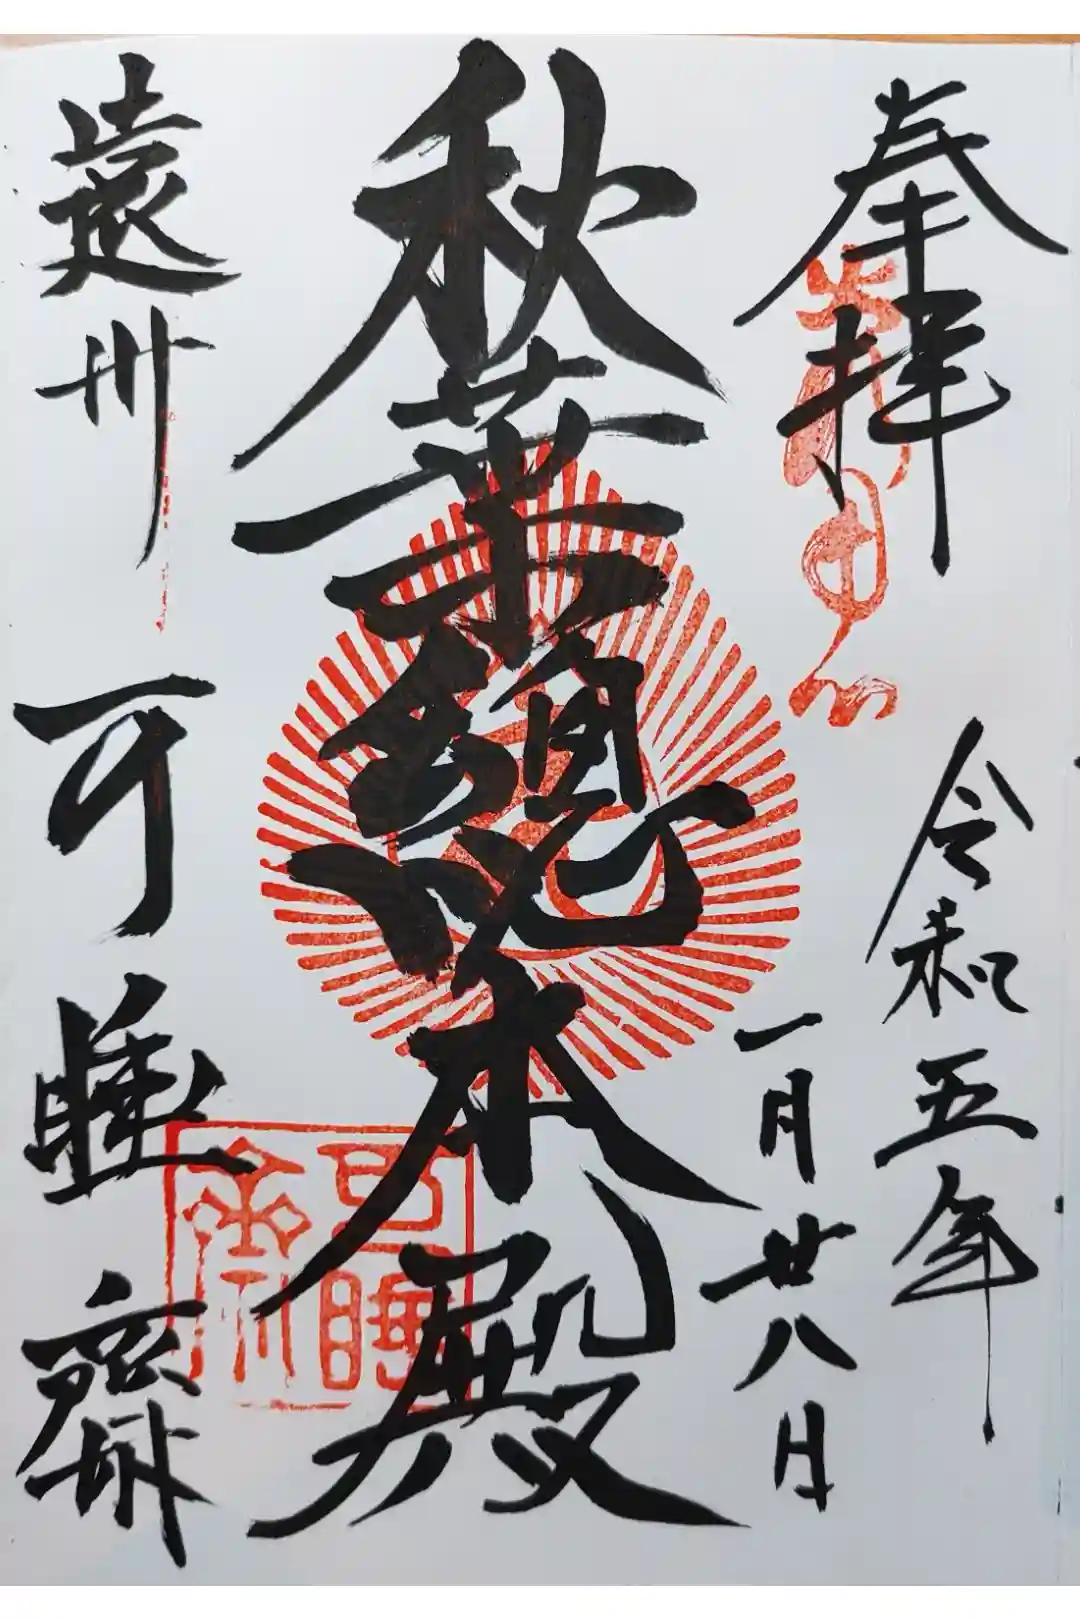 奉拝
令和五年
一月廿八日
秋葉總本殿
遠州
可睡齋